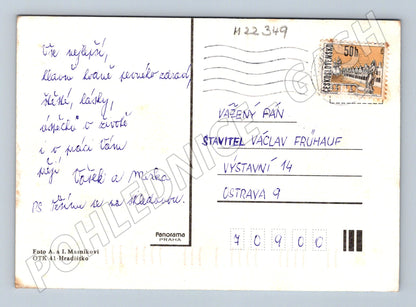 H 22 349
Vše nejlepší,
hlavně hodně pevného zdraví,
štěstí, lásky,
úspěchů v životě
i v práci Vám
přejí Vašek a Mirka
PS Těšíme se na shledanou.
Foto A. a I. Maxníkovi
OTK 41-Hradištko
Panorama
PRAHA
50h
ČESKOSLOVENSKO
VÁŽENÝ PÁN
STAVITEL VÁCLAV FRÜHAUF
VÝSTAVNÍ 14
OSTRAVA 9
7 0 9 0 0
POHLEDNICE GASH